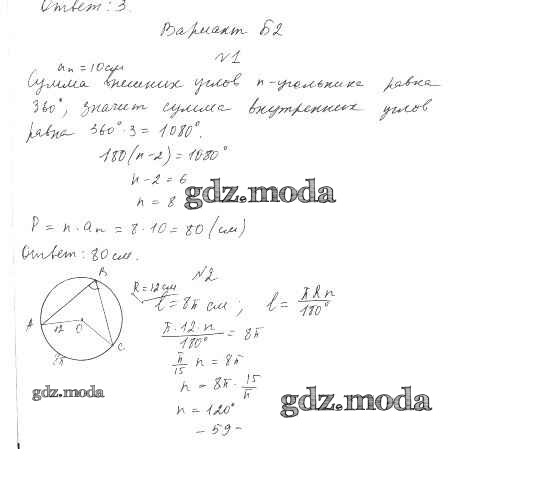 Ответ: 3.
Вариант Б2
№1
aₙ = 10 см
Сумма внешних углов n-угольника равна
360°, значит сумма внутренних углов
равна 360°·3 = 1080°.
180(n-2) = 1080°
n-2 = 6
n = 8
gdz.moda
P = n·aₙ = 8·10 = 80 (см)
Ответ: 80 см.
№2
B
R = 12 см
l = 8π см; l = πRn/180°
A
12
O
C
8π
π·12·n/180° = 8π
π/15 n = 8π
n = 8π · 15/π
n = 120°
gdz.moda
gdz.moda
- 59 -